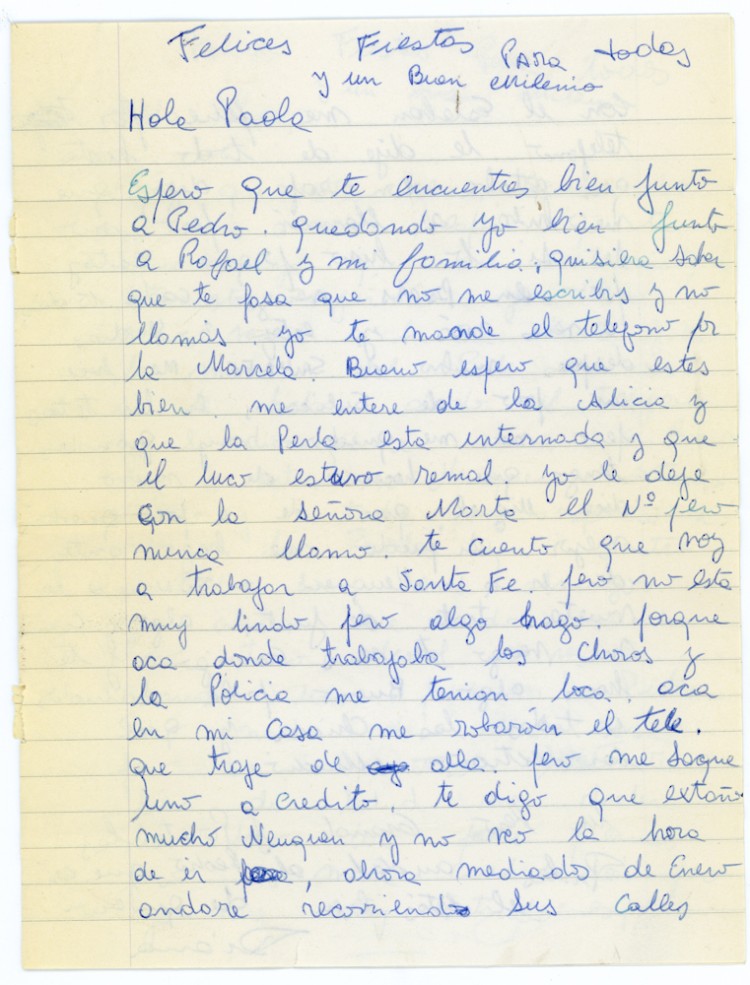 Felices Fiestas PARA todos
y un Buen Milenio
Hola Paola
Espero que te encuentres bien junto
a Pedro. quedando yo bien junto
a Rafael y mi familia, quisiera saber
que te pasa que no me escribis y no
llamás yo te mande el telefono por
la Marcela. Bueno espero que estes
bien. me entere de la Alicia y
que la Perla esta internada y que
el luco estuvo remal. yo le deje
con la señora Marta el Nº pero
nunca llamo. te cuento que voy
a trabajar a Santa Fe. pero no esta
muy lindo pero algo hago. porque
aca donde trabajaba los Choros y
la Policia me tenian loca. aca
en mi Casa me robarón el tele.
que traje de alla. pero me saque
uno a credito. te digo que extraño
mucho Neuquen y no veo la hora
de ir, ahora mediados de Enero
andare recorriendo sus Calles